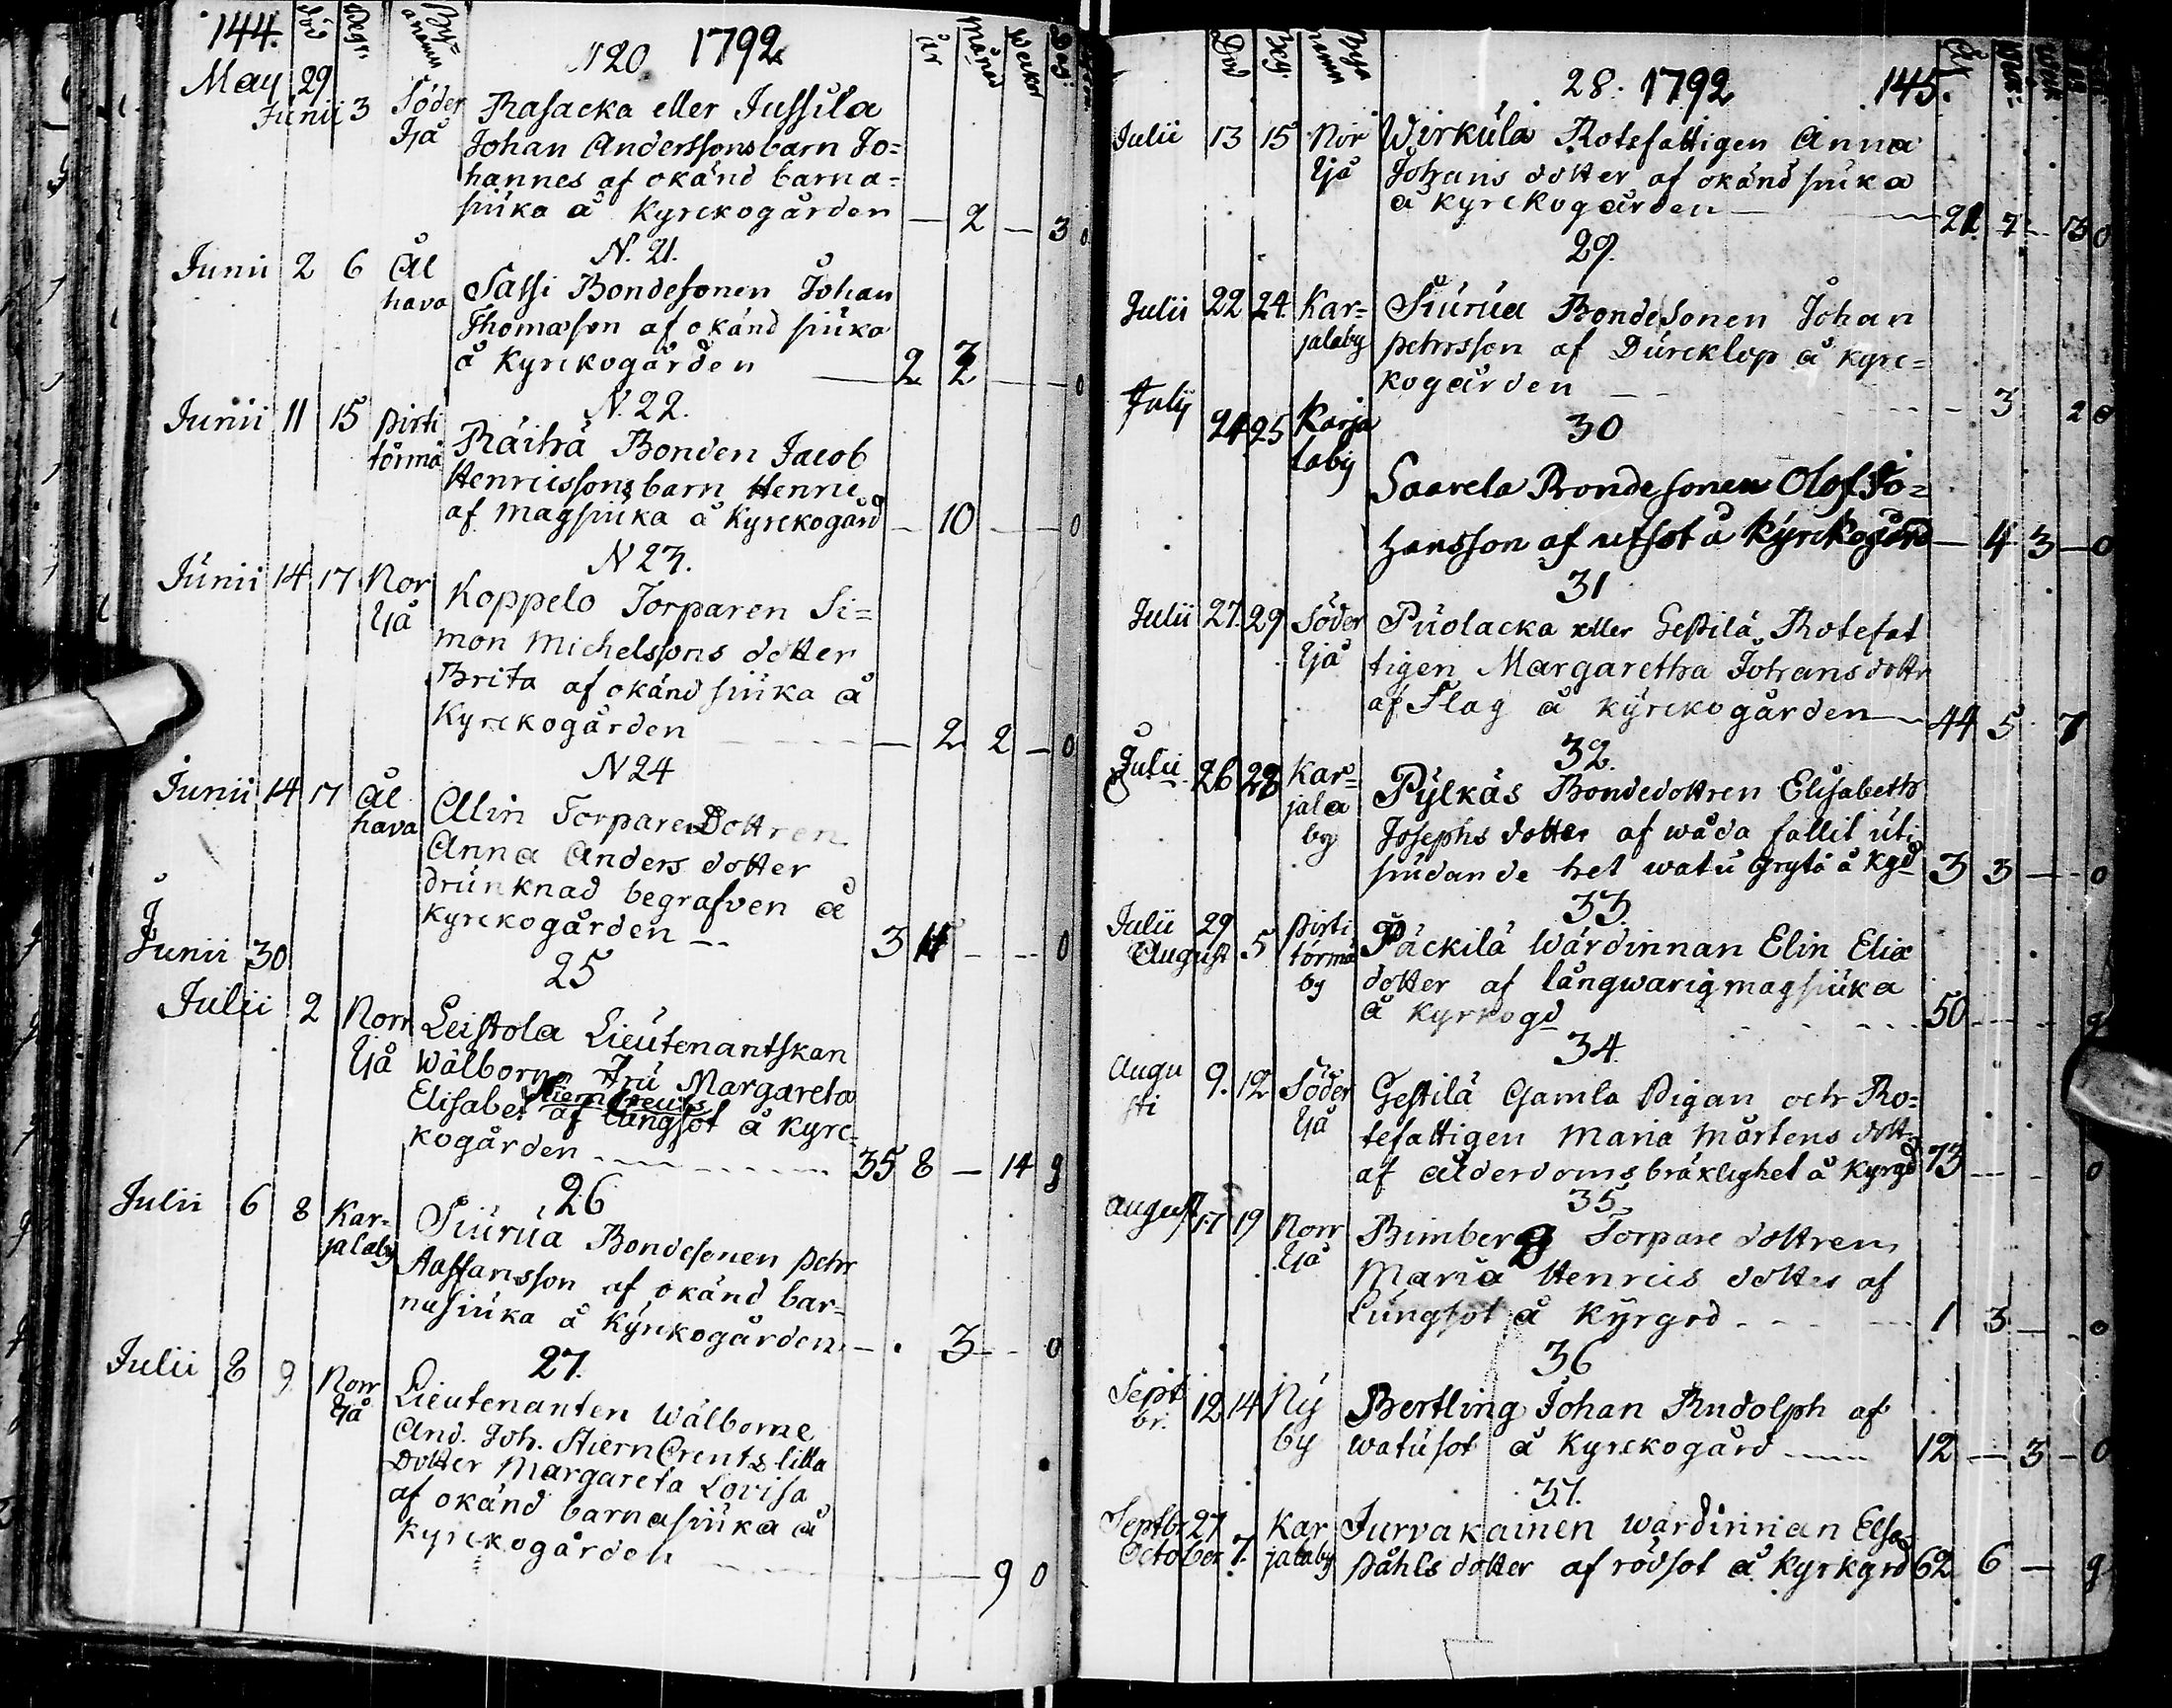 144. Död Begr. By= anamn N20 1792 år Månad Weckor Dag
May 29
Junii 3 Söder Rasacka eller Jussila
Ijå Johan Anderssons barn Jo=
hannes af okänd barna=
siuka å Kyrckogården — 2 — 3 0
N. 21.
Junii 2 6 Ål Sassi Bondesonen Johan
hava Thomasson af okänd siuka
å Kyrckogården — 2 — — 0
N. 22.
Junii 11 15 Pirti Räihä Bonden Jacob
törmä Henricssons barn Henric
af magsiuka å Kyrckogård — 10 — — 0
N 23.
Junii 14 17 Nor Koppelo Torparen Si=
Ijå mon Michelssons dotter
Brita af okänd siuka å
Kyrckogården — 2 2 — 0
N 24
Junii 14 17 Ål Allin Torpare Dottren
hava Anna Anders dotter
drunknad begrafven å
Kyrckogården -- 3 — -- 0
Junii 30 25
Julii 2 Norr Leistola Lieutenantskan
Ijå Wälborne Fru Margareta
Stiern Creutz
Elisabet af lungsot å Kyrc=
kogården 35 8 — 14 g
26
Julii 6 8 Kar= Siurua Bondesonen Pehr
jalaby Staffansson af okänd bar=
nasiuka å Kyrckogården — . 3 -- 0
27.
Julii 8 9 Norr Lieutenanten Wälborne
Ijå And. Joh. StiernCreutz lilla
Dotter Margareta Lovisa
af okänd barnasiuka å
Kyrckogården — 9 0
Död Beg Bya namn 28. 1792 145. År
Julii 13 15 Nor Wirkula Rotefattigen Anna
Ijå Johans dotter af okänd siuka
å Kyrckogården — 21 7 - 13 0
29.
Julii 22 24 Kar= Siurua Bondesonen Johan
jalaby Pehrsson af Durcklop å Kyrc=
kogården -- 3 2 0
July 24 25 Karja 30
laby
Saarela Bondesonen Olof Jo=
hansson af utsot å Kyrckogård — 4 3 — 0
31
Julii 27. 29 Söder Puolacka eller Gestilä Rotefat
Ijå tigen Margaretha Johans dottr
af Flag å Kyrckogården — 44 5 7
32.
Julii 26 28 Kar= Pylkäs Bondedottren Elisabeth
jala Josephs dotter af wåda fallit uti
by siudande het watu gryta å Kgd 3 3 — - 0
33.
Julii 29 Pirti Päckilä Wärdinnan Elin Elia
August 5 törmä dotter af långwarig magsiuka
by å Kyrkogd - - - 50 — - g
34.
Augu 9. 12 Söder Gestilä Gamla Pigan och Ro=
sti Ijå tefattigen Maria Mårtens dott=
af ålderdoms bräklighet å Kyrgd 73 — - 0
35.
August 17 19 Norr Bimberg Torpare dottren
Ijå Maria Henrics dotter af
Lungsot å Kyrgrd - - - 1 3 — - 0
36
Sept 12 14 Ny Bertling Johan Rudolph af
br. by watusot å Kyrckogård ---- 12 — 3 - 0
37.
Septbr 27 Kar Jurvakainen wärdinnan Elsa
October 7. jalaby Påhls dotter af rödsot å Kyrkgrd 62 6 — g